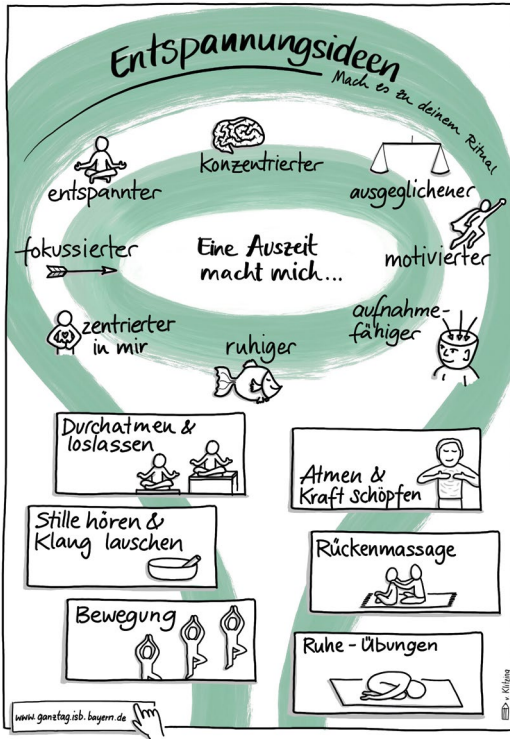 Entspannungsideen
Mach es zu deinem Ritual
konzentrierter
entspannter
ausgeglichener
fokussierter
Eine Auszeit
macht mich...
motivierter
zentrierter
in mir
ruhiger
aufnahme-
fähiger
Durchatmen &
loslassen
Atmen &
Kraft schöpfen
Stille hören &
Klang lauschen
Rückenmassage
Bewegung
Ruhe-Übungen
www.ganztag.isb.bayern.de
v. Klitzing